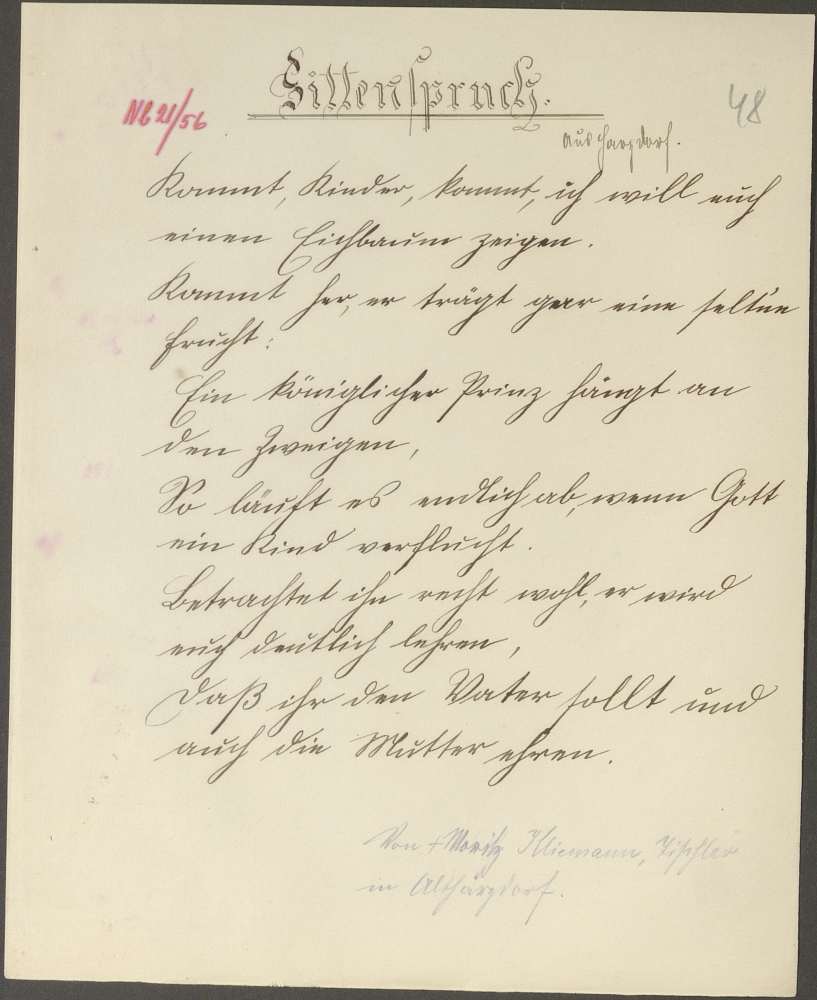 Sittenspruch.
NE 21/56
48
aus Harzdorf.
Kommt, Kinder, kommt, ich will euch
einen Eichbaum zeigen.
Kommt her, er trägt gar eine selt'ne
Frucht:
Ein königlicher Prinz hängt an
den Zweigen,
So läuft es endlich ab, wenn Gott
ein Kind verflucht.
Betrachtet ihn recht wohl, er wird
euch deutlich lehren,
Daß ihr den Vater sollt und
auch die Mutter ehren.
Von + Moritz Kliemann, Tischler
in Altharzdorf.